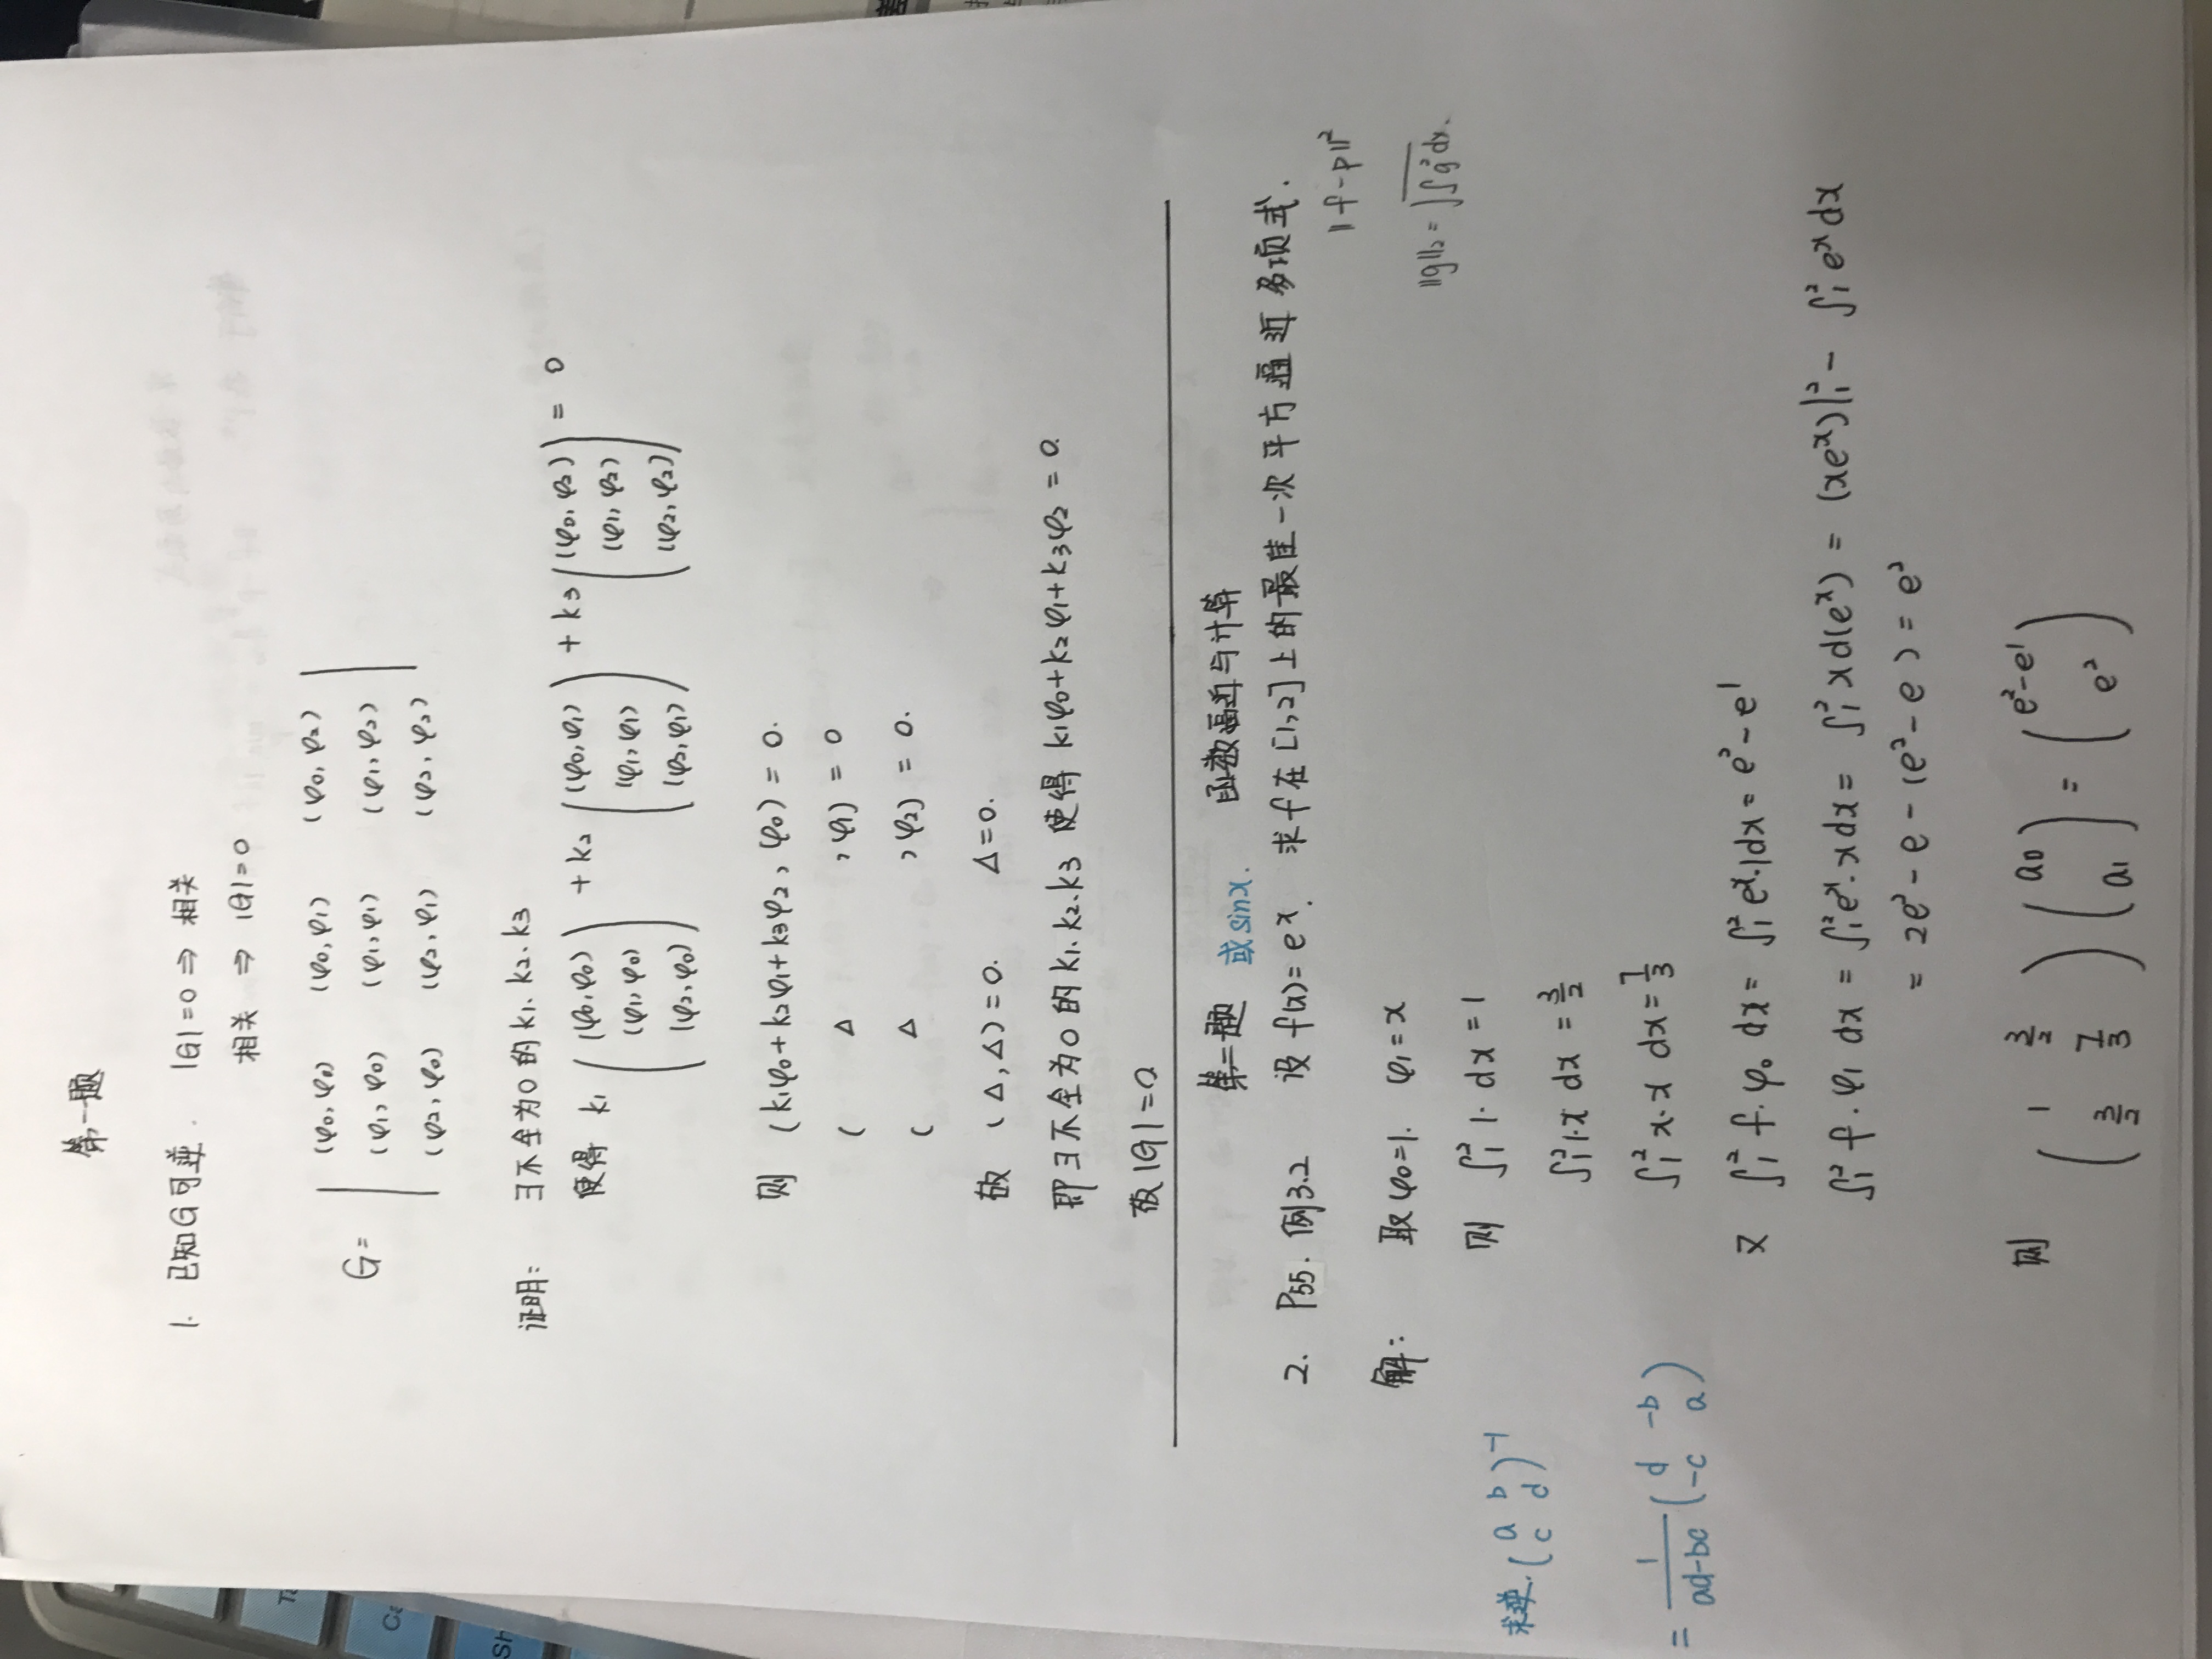 第一题
1. 已知G可逆. |G|=0 ⇒ 相关
相关 ⇒ |G|=0
G= | (φ0, φ0) (φ0, φ1) (φ0, φ2) |
(φ1, φ0) (φ1, φ1) (φ1, φ2)
(φ2, φ0) (φ2, φ1) (φ2, φ2)
证明: ∃不全为0的 k1、k2、k3
使得 k1 ( (φ0,φ0) (φ1,φ0) (φ2,φ0) ) + k2 ( (φ0,φ1) (φ1,φ1) (φ2,φ1) ) + k3 ( (φ0,φ2) (φ1,φ2) (φ2,φ2) ) = 0
则 (k1φ0+k2φ1+k3φ2, φ0) = 0.
( Δ , φ1) = 0
( Δ , φ2) = 0.
故 (Δ, Δ)=0. Δ=0.
即∃不全为0的 k1、k2、k3 使得 k1φ0+k2φ1+k3φ2 = 0.
故 |G|=0
第二题 或sinx. 函数逼近与计算
2. P55. 例3.2 设 f(x)=e^x. 求f在[1,2]上的最佳一次平方逼近多项式.
||f-p||²
解: 取φ0=1. φ1=x
||g||₂ = √∫g²dx.
则 ∫₁² 1· dx = 1
求逆. (a b
c d)^-1
∫₁² 1·x dx = 3/2
∫₁² x·x dx = 7/3
= 1/(ad-bc) (d -b
-c a)
又 ∫₁² f·φ0 dx = ∫₁² e^x·1dx = e²-e¹
∫₁² f·φ1 dx = ∫₁² e^x·xdx = ∫₁² xd(e^x) = (xe^x)|₁² - ∫₁² e^x dx
= 2e²-e-(e²-e) = e²
则 ( 1 3/2 ) ( a0 ) = ( e²-e¹ )
( 3/2 7/3 ) ( a1 ) ( e² )